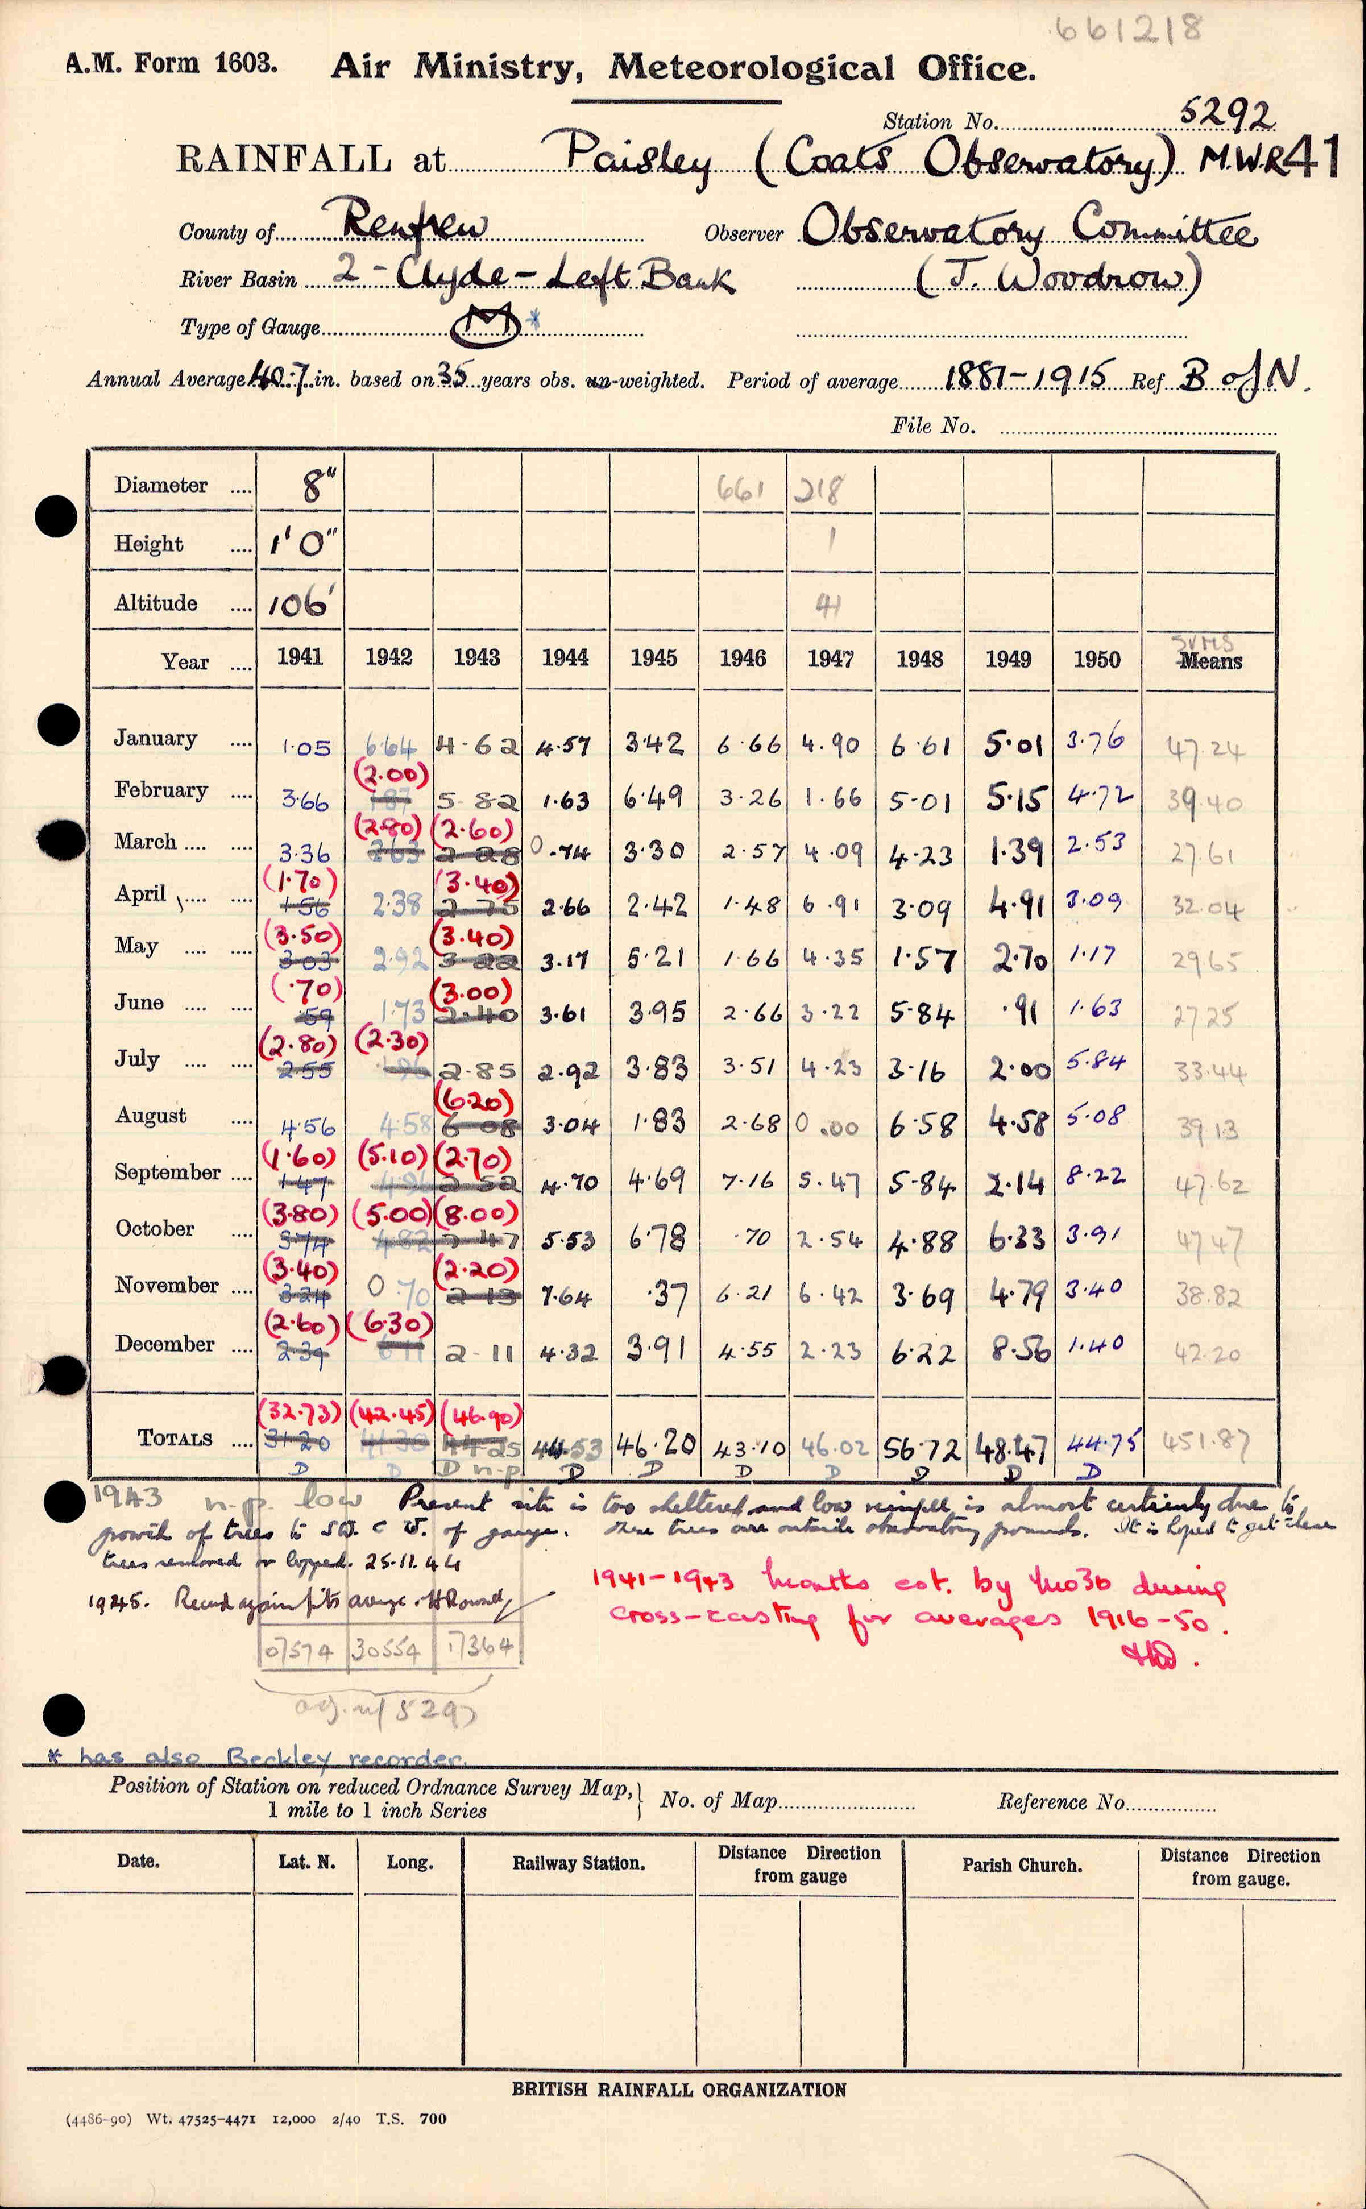 661218
A.M. Form 1603. Air Ministry, Meteorological Office.
Station No. 5292
RAINFALL at Paisley (Coats Observatory) M.W.R 41
County of Renfrew Observer Observatory Committee
River Basin 2 - Clyde - Left Bank (J. Woodrow)
Type of Gauge M *
Annual Average 40.7 in. based on 35 years obs. un-weighted. Period of average 1881-1915 Ref B of N.
File No.
Diameter .... 8" 661 218
Height .... 1' 0" 1
Altitude .... 106' 41
Year .... 1941 1942 1943 1944 1945 1946 1947 1948 1949 1950 SUMS Means
January .... 1.05 6.64 4.62 4.57 3.42 6.66 4.90 6.61 5.01 3.76 47.24
(2.00)
February .... 3.66 1.87 5.82 1.63 6.49 3.26 1.66 5.01 5.15 4.72 39.40
(2.80) (2.60)
March .... .... 3.36 2.63 2.28 0.74 3.30 2.57 4.09 4.23 1.39 2.53 27.61
(1.70) (3.40)
April .... .... 1.56 2.38 2.75 2.66 2.42 1.48 6.91 3.09 4.91 3.09 32.04
(3.50) (3.40)
May .... .... 3.03 2.92 3.22 3.17 5.21 1.66 4.35 1.57 2.70 1.17 29.65
(.70) (3.00)
June .... .... .59 1.73 2.40 3.61 3.95 2.66 3.22 5.84 .91 1.63 27.25
(2.80) (2.30)
July .... .... 2.55 1.96 2.85 2.92 3.83 3.51 4.23 3.16 2.00 5.84 33.44
(6.20)
August .... 4.56 4.58 6.08 3.04 1.83 2.68 0.00 6.58 4.58 5.08 39.13
(1.60) (5.10) (2.70)
September .... 1.47 4.96 2.52 4.70 4.69 7.16 5.47 5.84 2.14 8.22 47.62
(3.80) (5.00) (8.00)
October .... 3.74 4.82 7.47 5.53 6.78 .70 2.54 4.88 6.33 3.91 47.47
(3.40) (2.20)
November .... 3.24 0.70 2.13 7.64 .37 6.21 6.42 3.69 4.79 3.40 38.82
(2.60) (6.30)
December .... 2.39 6.11 2.11 4.32 3.91 4.55 2.23 6.22 8.56 1.40 42.20
(32.73) (42.45) (46.90)
TOTALS .... 31.20 41.30 44.25 44.53 46.20 43.10 46.02 56.72 48.47 44.75 451.87
D D D n.p. D D D D D D D
1943 n.p. low Present site is too sheltered and low rainfall is almost certainly due to
growth of trees to SW. & W. of gauge. These trees are outside observatory grounds. It is hoped to get these
trees removed or lopped. 25.11.44
1945. Record again fits average.
1941-1943 Months est. by Mo3b during
cross-casting for averages 1916-50.
07574 30554 17364
adj. n/ 5297
* has also Beckley recorder.
Position of Station on reduced Ordnance Survey Map, 1 mile to 1 inch Series } No. of Map Reference No.
Date. Lat. N. Long. Railway Station. Distance Direction from gauge Parish Church. Distance Direction from gauge.
BRITISH RAINFALL ORGANIZATION
(4486-90) Wt. 47525-4471 12,000 2/40 T.S. 700